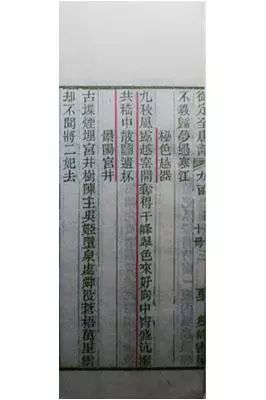 御定全唐詩
不教歸夢過寒江
秘色越器
九秋風露越窑開奪得千峰翠色來好向中宵盛沆瀣
共嵇中散鬭遺杯
景陽宮井
古堞煙埋宮井樹陳主吳姬墮泉處舜沒蒼梧萬里雲
却不聞將二妃去